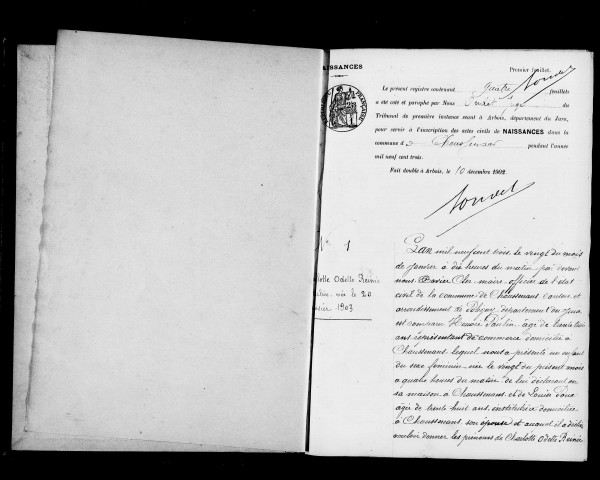 NAISSANCES
Premier feuillet.
Le présent registre contenant quatre feuillets
a été coté et paraphé par Nous juge du
Tribunal de première instance séant à Arbois, département du Jura,
pour servir à l'inscription des actes civils de NAISSANCES dans la
commune de Chaussenans pendant l'année
mil neuf cent trois.
Fait double à Arbois, le 10 décembre 1902.
N° 1
Charlotte Odette Reinée
née le 20
janvier 1903
L'an mil neuf cent trois, le vingt du mois
de janvier à dix heures du matin par devant
nous Xavier Cler maire officier de l'état
civil de la commune de Chaussenans canton et
arrondissement de Poligny, département du Jura
est comparu Paulin âgé de trente trois
ans représentant de commerce domicilié à
Chaussenans lequel nous a présenté un enfant
du sexe féminin née le vingt du présent mois
à quatre heures du matin de lui déclarant en
sa maison à Chaussenans et de Louise
âgée de trente huit ans institutrice domiciliée
à Chaussenans son épouse et auquel il a déclaré
vouloir donner les prénoms de Charlotte Odette Reinée